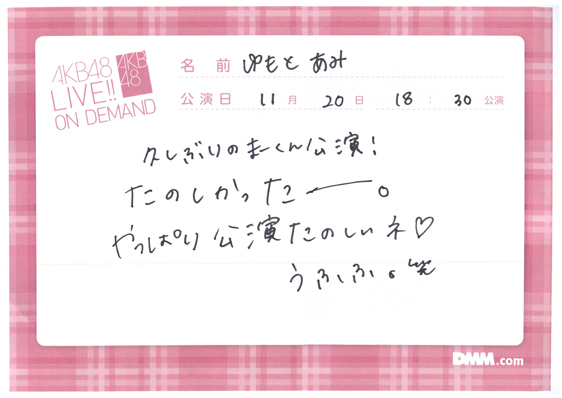 AKB48
LIVE!!
ON DEMAND
AKB
48
名 前 ゆもと あみ
公演日 11月 20日 18:30公演
久しぶりのまーくん公演!
たのしかったー。
やっぱり公演たのしいネ♡
うふふ。笑
DMM.com